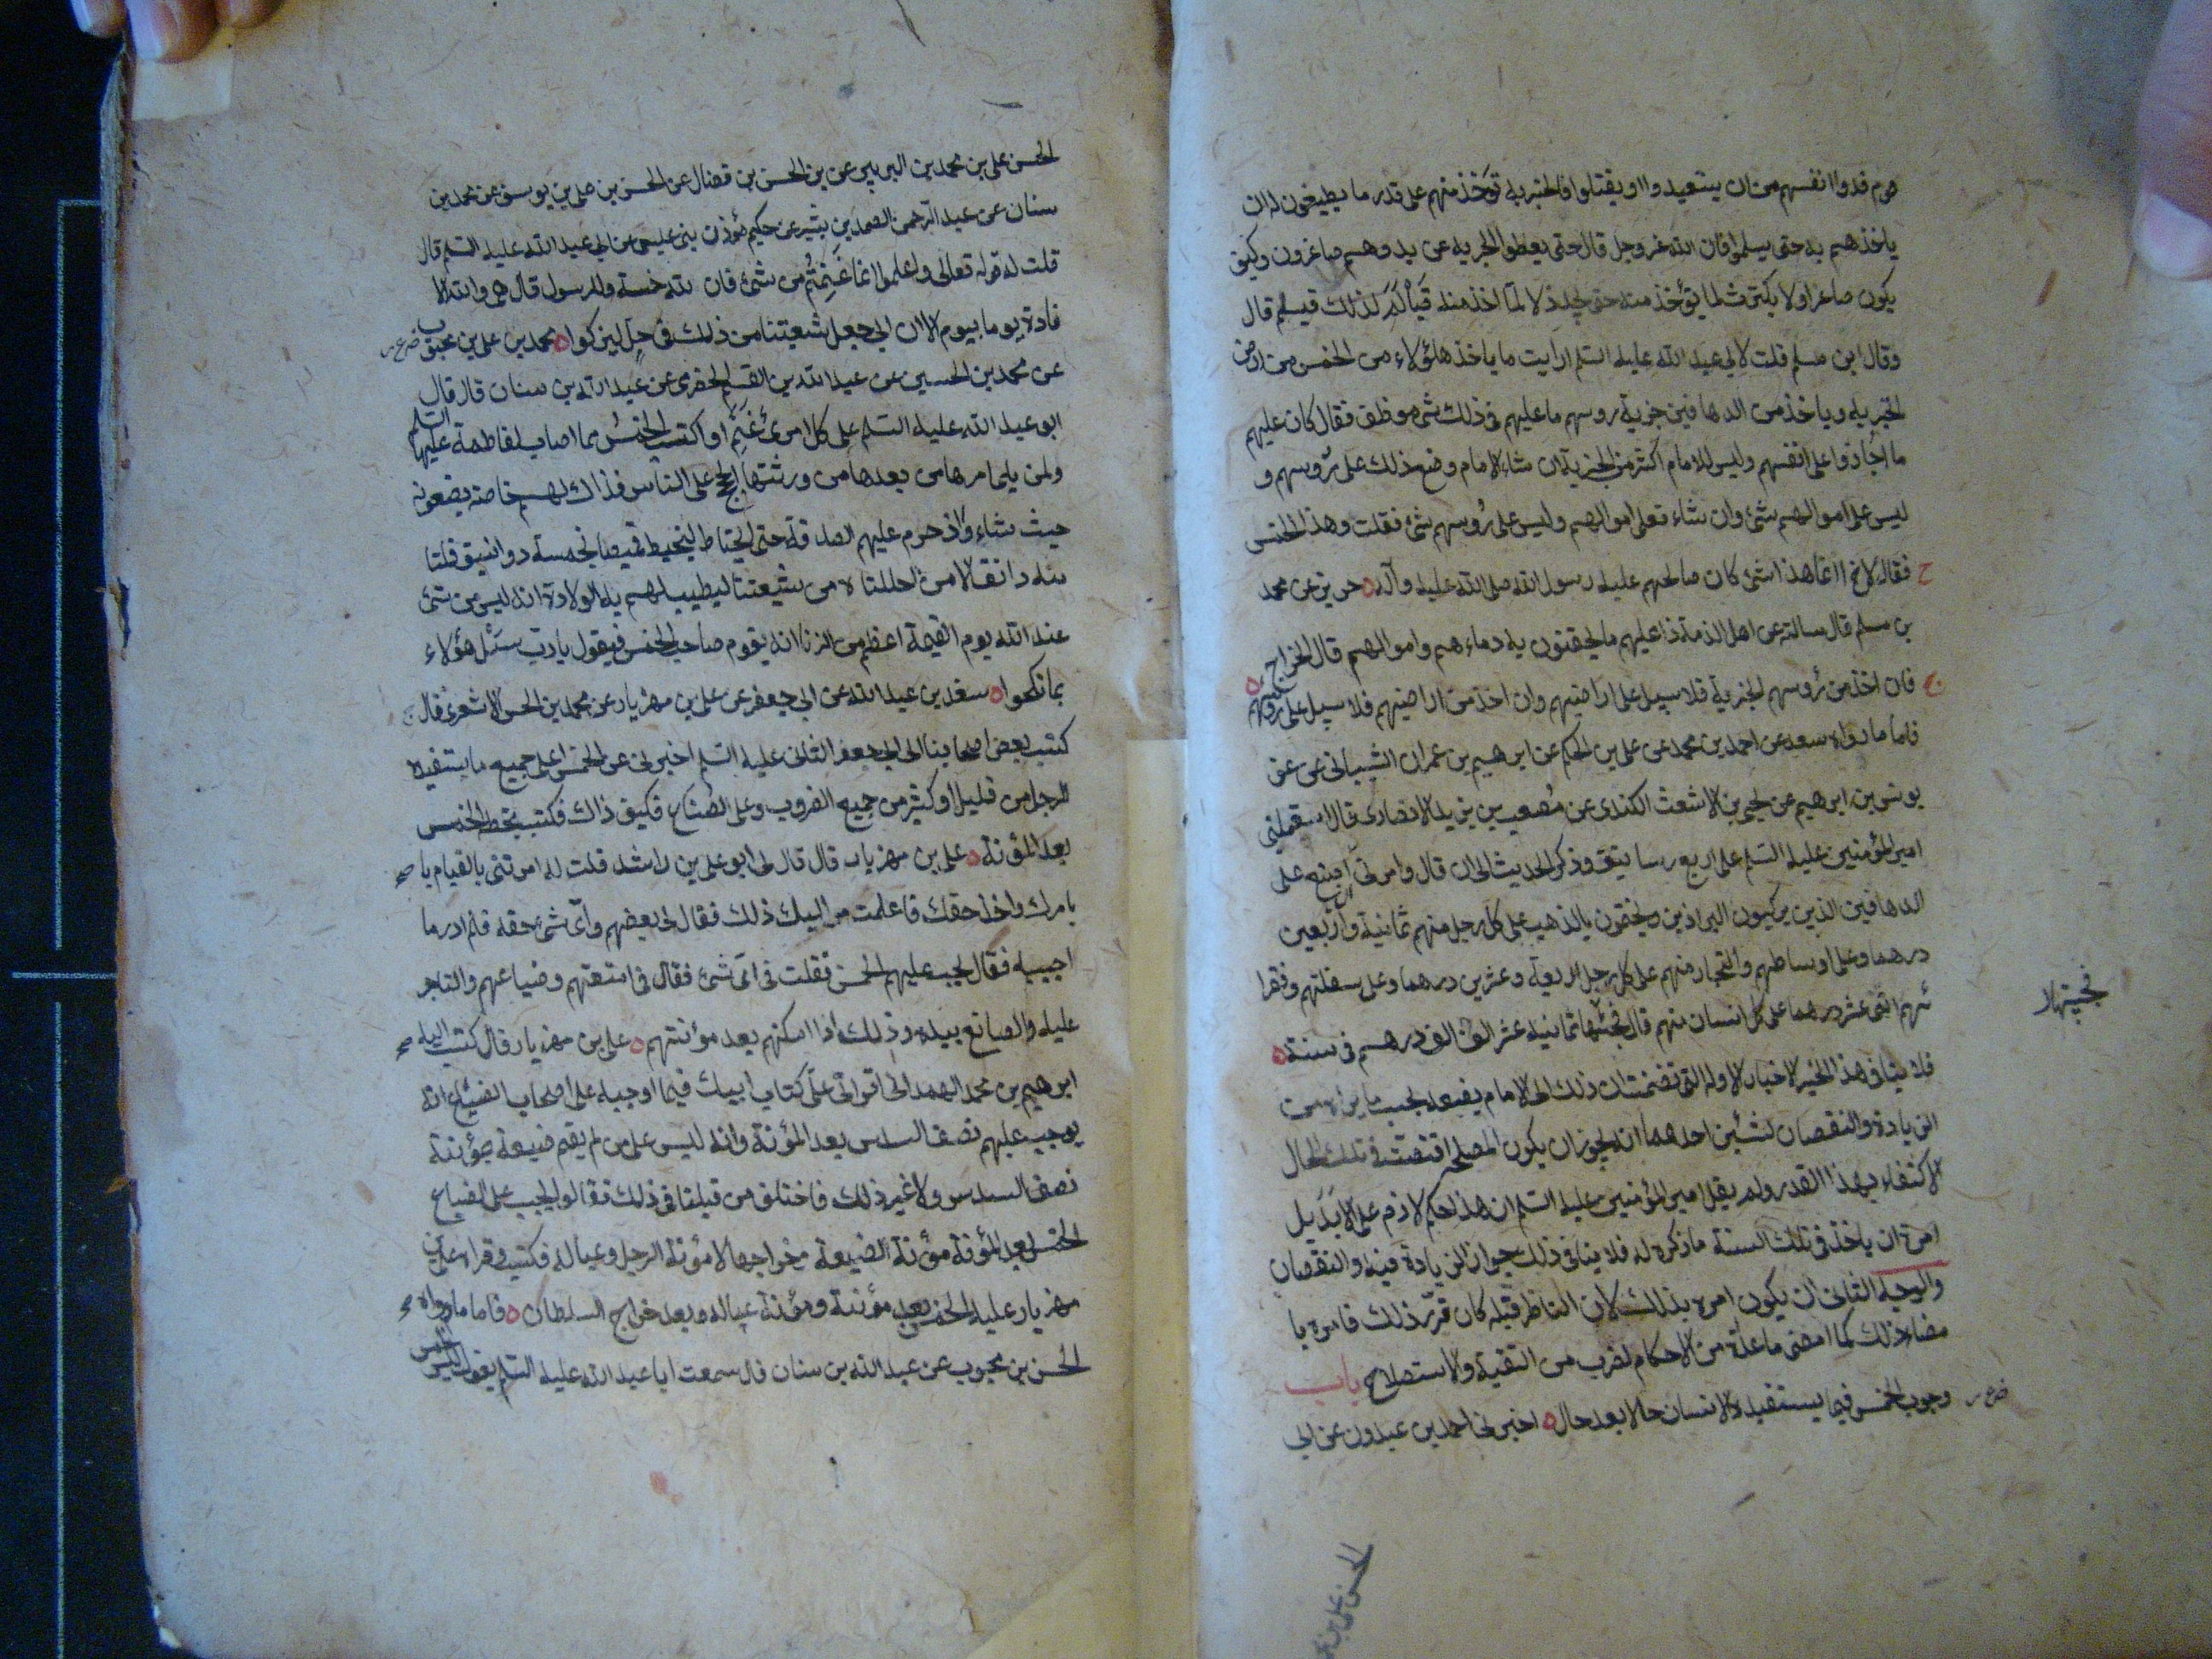 هم فدوا انفسهم من ان يستعبدوا او يقتلوا فالجزية تؤخذ منهم على قدر ما يطيقون له ان
ياخذهم به حتى يسلموا فان الله عز وجل قال حتى يعطوا الجزية عن يد وهم صاغرون وكيف
يكون صاغرا ولا يكترث لما يؤخذ منه حتى يجد ذلا لما اخذ منه فيألم لذلك فيسلم قال
وقال ابن مسلم قلت لابي عبد الله عليه السلم ارايت ما ياخذ هاؤلاء من الخمس من ارض
الجزية وياخذ من الدهاقين جزية روسهم ما عليهم في ذلك شئ موظف فقال كان عليهم
ما اجازوا على انفسهم وليس للامام اكثر من الجزية ان شاء الامام وضع ذلك على رؤسهم و
ليس على اموالهم شئ وان شاء فعلى اموالهم وليس على رؤسهم شئ فقلت وهذا الخمس
فقال انما هذا شئ كان صالحهم عليه رسول الله صلى الله عليه وآله حريز عن محمد
بن مسلم قال سالته عن اهل الذمة ماذا عليهم ما يحقنون به دماءهم واموالهم قال الخراج
فان اخذ من رؤسهم الجزية فلا سبيل على اراضيهم وان اخذ من اراضيهم فلا سبيل على رؤسهم
فاما ما رواه سعد عن احمد بن محمد عن علي بن الحكم عن ابرهيم بن عمران الشيباني عن
يونس بن ابرهيم عن يحيى بن الاشعث الكندي عن مصعب بن يزيد الانصاري قال استعملني
امير المؤمنين عليه السلم على اربع رساتيق وذكر الحديث الى ان قال وامرني ان اضع على
الدهاقين الذين يركبون البراذين ويتختمون بالذهب على كل رجل منهم ثمانية واربعين
درهما وعلى اوساطهم والتجار منهم على كل رجل اربعة وعشرين درهما وعلى سفلتهم وفقرا
ئهم اثنى عشر درهما على كل انسان منهم قال فجبيتها ثمانية عشر الف الف درهم في سنة
فجبيتها
فلا ينافي هذا الخبر الاخبار الاولة التي تضمنت ان ذلك الى الامام يضعه بحسب ما يراه من
الزيادة والنقصان لشيئين احدهما انه يجوز ان يكون المصلحة اقتضت في تلك الحال
الاكتفاء بهذا القدر ولم يقل امير المؤمنين عليه السلم ان هذا حكم لازم على الابد بل
امره ان ياخذ في تلك السنة ما ذكره له فلا ينافي ذلك جواز الزيادة فيه والنقصان
والوجه الثاني ان يكون امره بذلك لان الناظر قبله كان قرر ذلك فامره با
مضاء ذلك كما امضى ما عداه من الاحكام لضرب من التقية والاستصلاح باب
وجوب الخمس فيما يستفيده الانسان حالا بعد حال اخبرني احمد بن عبدون عن ابي
الحسن علي بن
الحسن علي بن محمد بن الزبير عن علي بن الحسن بن فضال عن الحسن بن علي بن يوسف عن محمد بن
سنان عن عبد الصمد بن بشير عن حكيم مؤذن بني عبس عن ابي عبد الله عليه السلم قال
قلت له قوله تعالى واعلموا انما غنمتم من شئ فان لله خمسه وللرسول قال هي والله الا
فادة يوما بيوم الا ان ابي جعل شيعتنا من ذلك في حل ليزكوا محمد بن علي بن محبوب
عن محمد بن الحسين عن عبد الله بن القسم الحضرمي عن عبد الله بن سنان قال قال
ابو عبد الله عليه السلم على كل امرئ غنم او اكتسب الخمس مما اصاب لفاطمة عليها السلم
ولمن يلي امرها من بعدها من ورثتها الحجج على الناس فذاك لهم خاصة يضعونه
حيث شاءوا اذ حرم عليهم الصدقة حتى الخياط ليخيط قميصا بخمسة دوانيق فلنا
منه دانق الا من احللناه من شيعتنا ليطيب لهم به الولادة انه ليس من شئ
عند الله يوم القيمة اعظم من الزنا انه يقوم صاحب الخمس فيقول يا رب سل هؤلاء
بما نكحوا سعد بن عبد الله عن ابي جعفر عن علي بن مهزيار عن محمد بن الحسن الاشعري قال
كتب بعض اصحابنا الى ابي جعفر الثاني عليه السلم اخبرني عن الخمس اعلى جميع ما يستفيد
الرجل من قليل او كثير من جميع الضروب وعلى الضياع فكيف ذاك فكتب بخطه الخمس
بعد المؤنة علي بن مهزيار قال قال لي ابو علي بن راشد قلت له امرتني بالقيام با
بامرك واخذ حقك فاعلمت مواليك ذلك فقال لي بعضهم واي شئ حقه فلم ادر ما
اجيبه فقال يجب عليهم الخمس فقلت في اي شئ فقال في امتعتهم وضياعهم والتاجر
عليه والصانع بيده وذلك اذا امكنهم بعد مؤنتهم علي بن مهزيار قال كتب اليه
ابرهيم بن محمد الهمداني اقراني علي كتاب ابيك فيما اوجبه على اصحاب الضياع انه
يوجب عليهم نصف السدس بعد المؤنة وانه ليس على من لم يقم ضيعته بمؤنته
نصف السدس ولا غير ذلك فاختلف من قبلنا في ذلك فقالوا يجب على الضياع
الخمس بعد المؤنة مؤنة الضيعة وخراجها لا مؤنة الرجل وعياله فكتب وقراه علي بن
مهزيار عليه الخمس بعد مؤنته ومؤنة عياله وبعد خراج السلطان فاما ما رواه
الحسن بن محبوب عن عبد الله بن سنان قال سمعت ابا عبد الله عليه السلم يقول ليس الخمس